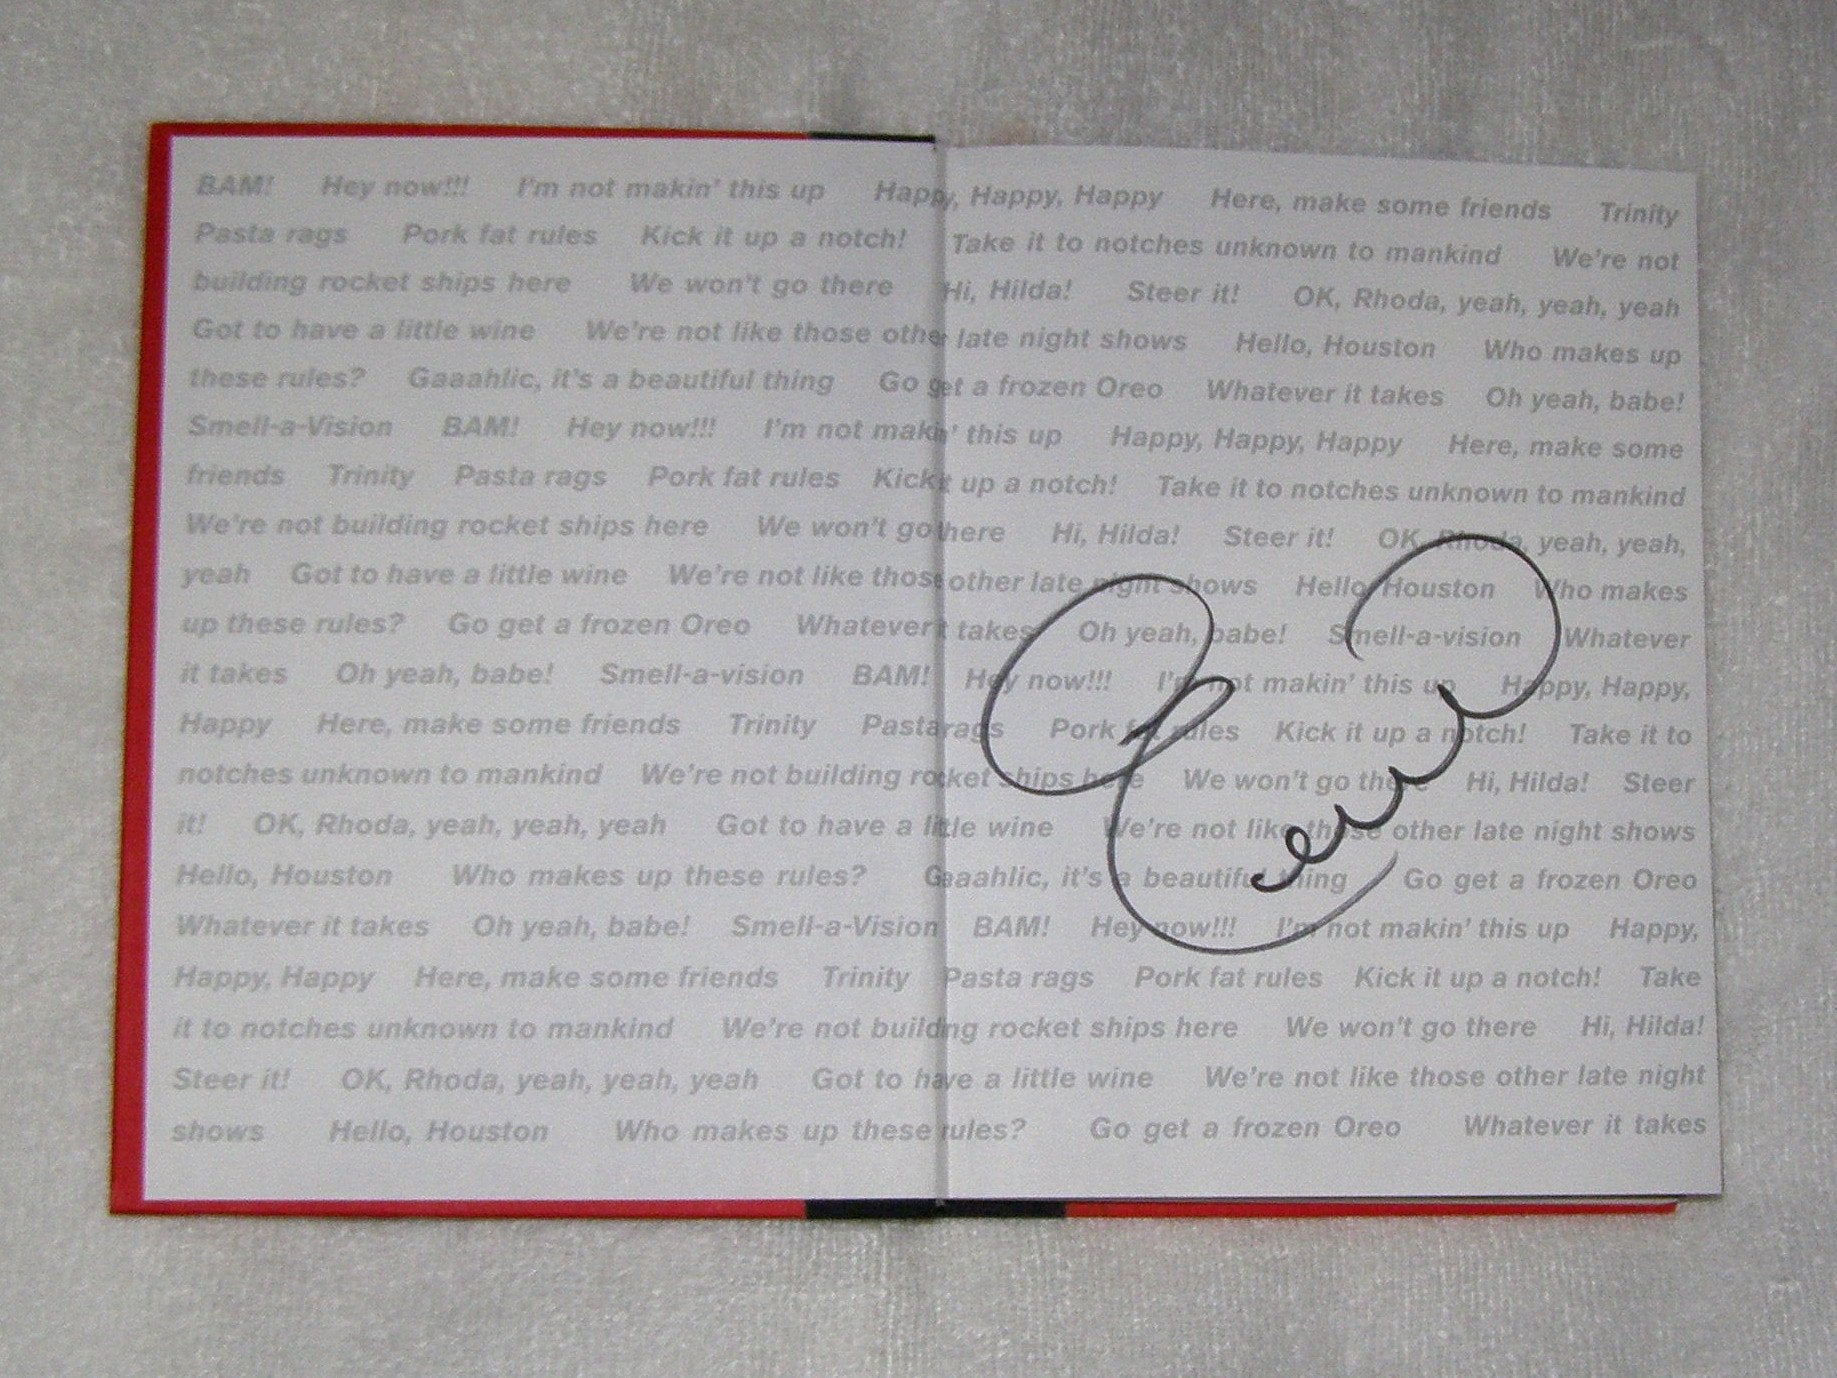 BAM! Hey now!!! I'm not makin' this up Happy, Happy, Happy Here, make some friends Trinity
Pasta rags Pork fat rules Kick it up a notch! Take it to notches unknown to mankind We're not
building rocket ships here We won't go there Hi, Hilda! Steer it! OK, Rhoda, yeah, yeah, yeah
Got to have a little wine We're not like those other late night shows Hello, Houston Who makes up
these rules? Gaaahlic, it's a beautiful thing Go get a frozen Oreo Whatever it takes Oh yeah, babe!
Smell-a-Vision BAM! Hey now!!! I'm not makin' this up Happy, Happy, Happy Here, make some
friends Trinity Pasta rags Pork fat rules Kick it up a notch! Take it to notches unknown to mankind
We're not building rocket ships here We won't go there Hi, Hilda! Steer it! OK, Rhoda, yeah, yeah,
yeah Got to have a little wine We're not like those other late night shows Hello, Houston Who makes
up these rules? Go get a frozen Oreo Whatever it takes Oh yeah, babe! Smell-a-vision Whatever
it takes Oh yeah, babe! Smell-a-vision BAM! Hey now!!! I'm not makin' this up Happy, Happy,
Happy Here, make some friends Trinity Pasta rags Pork fat rules Kick it up a notch! Take it to
notches unknown to mankind We're not building rocket ships here We won't go there Hi, Hilda! Steer
it! OK, Rhoda, yeah, yeah, yeah Got to have a little wine We're not like those other late night shows
Hello, Houston Who makes up these rules? Gaaahlic, it's a beautiful thing Go get a frozen Oreo
Whatever it takes Oh yeah, babe! Smell-a-Vision BAM! Hey now!!! I'm not makin' this up Happy,
Happy, Happy Here, make some friends Trinity Pasta rags Pork fat rules Kick it up a notch! Take
it to notches unknown to mankind We're not building rocket ships here We won't go there Hi, Hilda!
Steer it! OK, Rhoda, yeah, yeah, yeah Got to have a little wine We're not like those other late night
shows Hello, Houston Who makes up these rules? Go get a frozen Oreo Whatever it takes